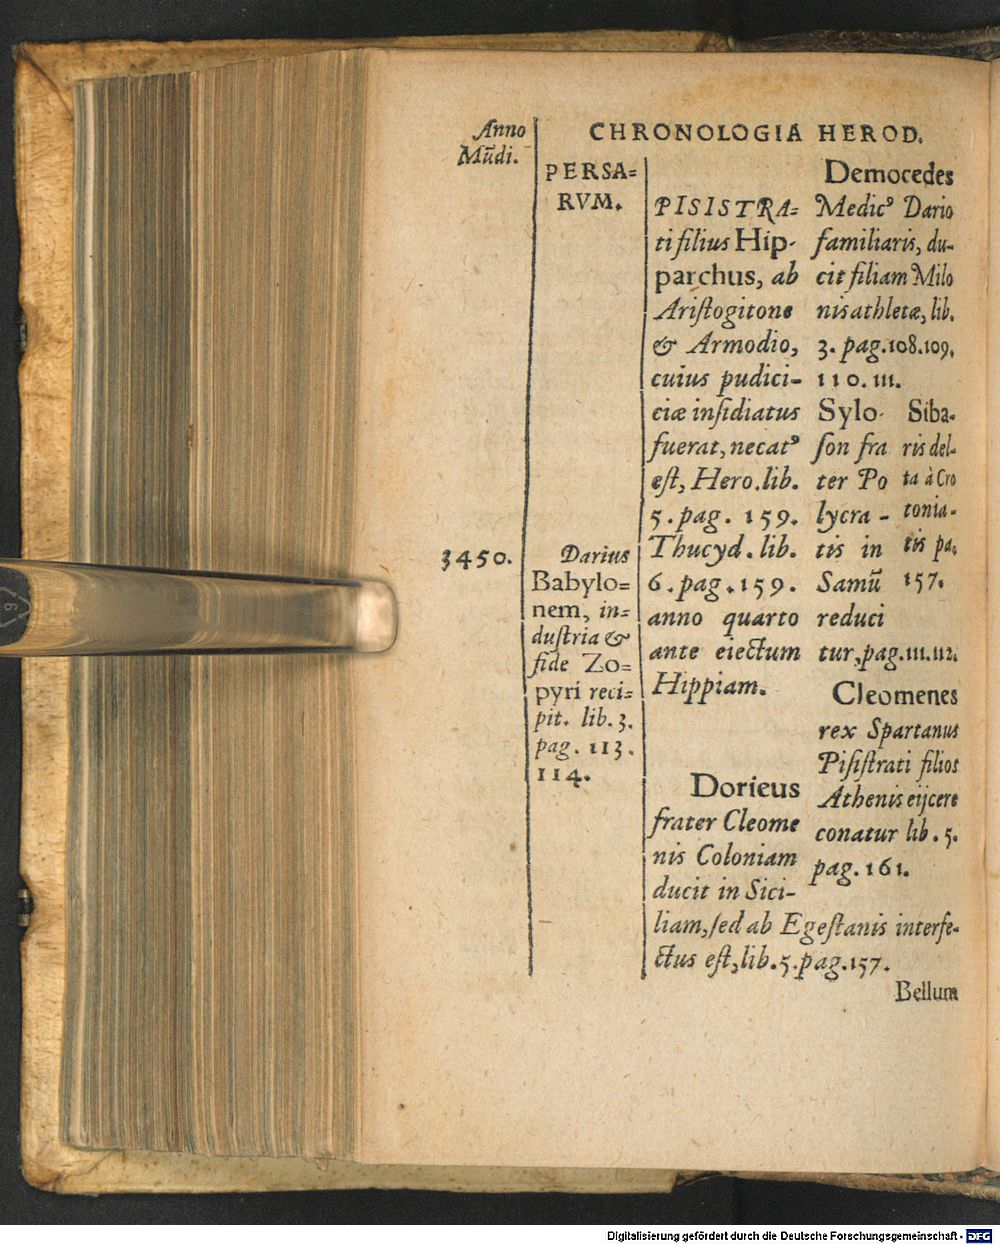 Anno
Mũdi.
CHRONOLOGIA HEROD.
PERSA=
RVM.
3450.
Darius
Babylo=
nem, in=
dustria &
fide Zo=
pyri reci=
pit. lib. 3.
pag. 113.
114.
PISISTRA=
ti filius Hip-
parchus, ab
Aristogitone
& Armodio,
cuius pudici-
ciæ insidiatus
fuerat, necatꝰ
est, Hero. lib.
5. pag. 159.
Thucyd. lib.
6. pag. 159.
anno quarto
ante eiectum
Hippiam.
Dorieus
frater Cleome
nis Coloniam
ducit in Sici-
liam, sed ab Egestanis interfe-
ctus est, lib. 5. pag. 157.
Democedes
Medicꝰ Dario
familiaris, du-
cit filiam Milo
nis athletæ, lib.
3. pag. 108. 109.
110. 111.
Sylo-
son fra
ter Po
lycra -
tis in
Samũ
reduci
tur, pag. 111. 112.
Siba-
ris del-
ta à Cro
tonia-
tis pa.
157.
Cleomenes
rex Spartanus
Pisistrati filios
Athenis eijcere
conatur lib. 5.
pag. 161.
Bellum
Digitalisierung gefördert durch die Deutsche Forschungsgemeinschaft - DFG